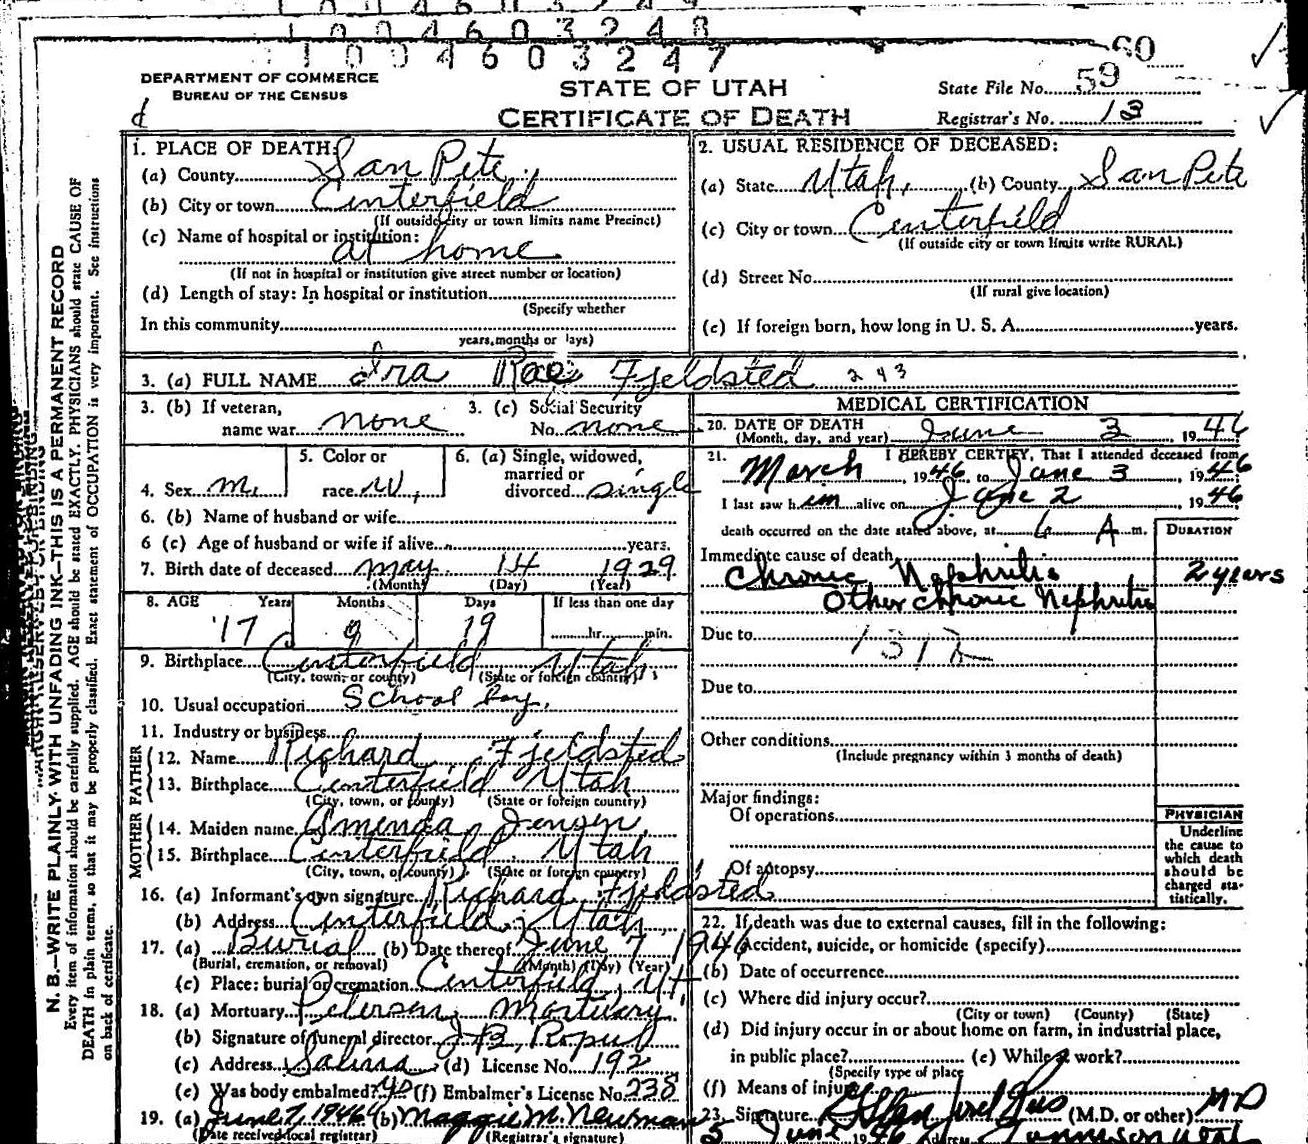 1 0 0 4 6 0 3 2 4 8
1 0 0 4 6 0 3 2 4 7
60
DEPARTMENT OF COMMERCE
BUREAU OF THE CENSUS
STATE OF UTAH
CERTIFICATE OF DEATH
State File No. 59
Registrar's No. 13
N. B.—WRITE PLAINLY WITH UNFADING INK—THIS IS A PERMANENT RECORD
Every item of information should be carefully supplied. AGE should be stated EXACTLY. PHYSICIANS should state CAUSE OF
DEATH in plain terms, so that it may be properly classified. Exact statement of OCCUPATION is very important. See instructions
on back of certificate.
1. PLACE OF DEATH:
(a) County San Pete
(b) City or town Centerfield
(If outside city or town limits name Precinct)
(c) Name of hospital or institution:
at home
(If not in hospital or institution give street number or location)
(d) Length of stay: In hospital or institution
(Specify whether
In this community
years, months or days)
2. USUAL RESIDENCE OF DECEASED:
(a) State Utah, (b) County San Pete
(c) City or town Centerfield
(If outside city or town limits write RURAL)
(d) Street No.
(If rural give location)
(e) If foreign born, how long in U. S. A. years.
3. (a) FULL NAME Ira Rae Fjeldsted 243
3. (b) If veteran, name war none
3. (c) Social Security No. none
4. Sex M.
5. Color or race W.
6. (a) Single, widowed, married or divorced single
6. (b) Name of husband or wife
6 (c) Age of husband or wife if alive years.
7. Birth date of deceased May 14 1929
(Month) (Day) (Year)
8. AGE Years Months Days If less than one day
17 0 19 hr. min.
9. Birthplace Centerfield, Utah
(City, town, or county) (State or foreign country)
10. Usual occupation School boy.
11. Industry or business
FATHER
12. Name Richard Fjeldsted
13. Birthplace Centerfield Utah
(City, town, or county) (State or foreign country)
MOTHER
14. Maiden name Amenda Jensen
15. Birthplace Centerfield, Utah
(City, town, or county) (State or foreign country)
16. (a) Informant's own signature Richard Fjeldsted
(b) Address Centerfield, Utah
17. (a) Burial (b) Date thereof June 7 1946
(Burial, cremation, or removal) (Month) (Day) (Year)
(c) Place: burial or cremation Centerfield, Ut
18. (a) Mortuary Petersen Mortuary
(b) Signature of funeral director J. B.
(c) Address Salina (d) License No. 192
(e) Was body embalmed? (f) Embalmer's License No. 238
19. (a) June 7, 1946 (b) Maggie M. Newman
(Date received local registrar) (Registrar's signature)
MEDICAL CERTIFICATION
20. DATE OF DEATH
(Month, day, and year) June 3, 1946
21. I HEREBY CERTIFY, That I attended deceased from
March, 1946 to June 3, 1946
I last saw him alive on June 2, 1946
death occurred on the date stated above, at 6 A m.
DURATION
Immediate cause of death
Chronic Nephritis 2 years
Other Chronic Nephritis
Due to
Due to
Other conditions
(Include pregnancy within 3 months of death)
Major findings:
Of operations
Of autopsy
PHYSICIAN
Underline
the cause to
which death
should be
charged sta-
tistically.
22. If death was due to external causes, fill in the following:
Accident, suicide, or homicide (specify)
(b) Date of occurrence
(c) Where did injury occur?
(City or town) (County) (State)
(d) Did injury occur in or about home on farm, in industrial place,
in public place? (e) While at work?
(Specify type of place
(f) Means of injury
23. Signature (M.D. or other) MD
June 1946 Address Gunnison Utah